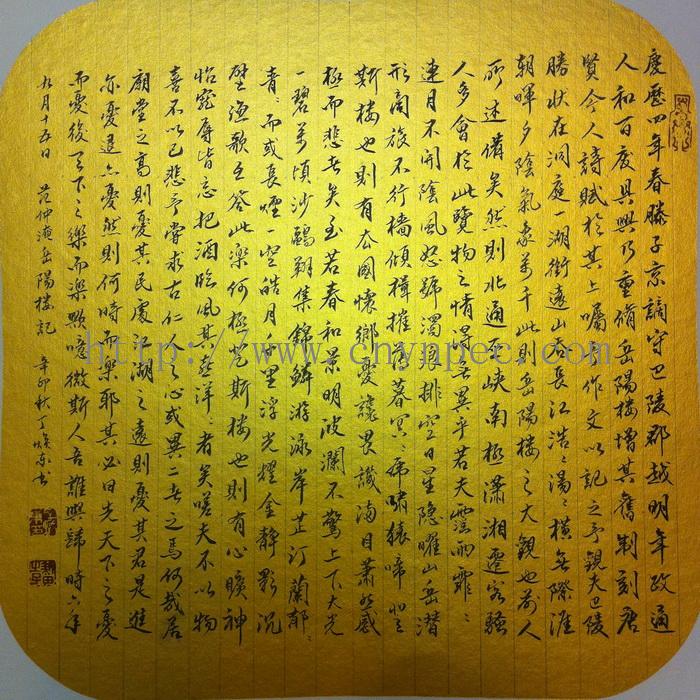 慶歷四年春滕子京謫守巴陵郡越明年政通
人和百廢具興乃重脩岳陽樓增其舊制刻唐
賢今人詩賦於其上囑予作文以記之予觀夫巴陵
勝狀在洞庭一湖銜遠山吞長江浩浩湯湯橫無際涯
朝暉夕陰氣象萬千此則岳陽樓之大觀也前人
所述備矣然則北通巫峽南極瀟湘遷客騷
人多會於此覽物之情得無異乎若夫霪雨霏霏
連月不開陰風怒號濁浪排空日星隱曜山岳潛
形商旅不行檣傾楫摧薄暮冥冥虎嘯猿啼登
斯樓也則有去國懷鄉憂讒畏譏滿目蕭然感
極而悲者矣至若春和景明波瀾不驚上下天光
一碧萬頃沙鷗翔集錦鱗游泳岸芷汀蘭郁郁
青青而或長煙一空皓月千里浮光耀金靜影沉
壁漁歌互答此樂何極登斯樓也則有心曠神
怡寵辱皆忘把酒臨風其喜洋洋者矣嗟夫不以物
喜不以己悲予嘗求古仁人之心或異二者之為何哉居
廟堂之高則憂其民處江湖之遠則憂其君是進
亦憂退亦憂然則何時而樂耶其必曰先天下之憂
而憂後天下之樂而樂歟噫微斯人吾誰與歸時六年
九月十五日 范仲淹岳陽樓記 辛卯秋丁煥東书
http://www.cnynpec.com